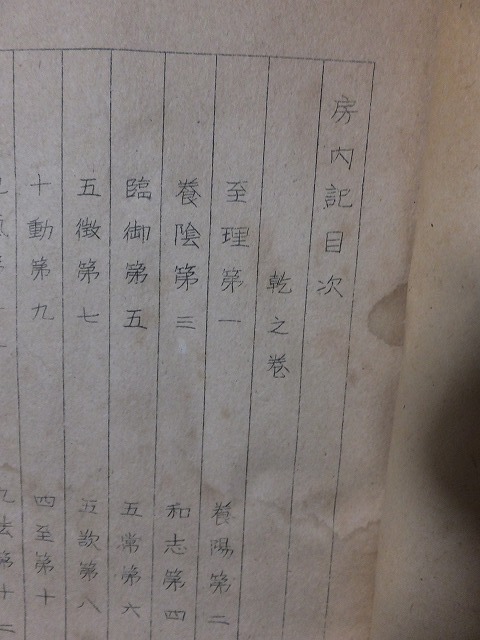 房内記目次
乾之卷
至理第一
養陽第二
養陰第三
和志第四
臨御第五
五常第六
五徴第七
五欲第八
十動第九
四至第十
九法第十二